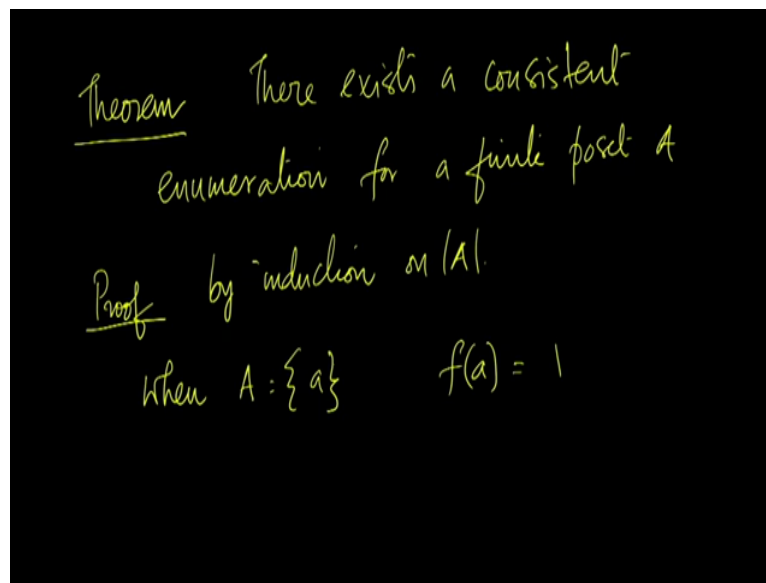 Theorem There exists a consistent
enumeration for a finite poset A
Proof by induction on |A|.
when A = {a} f(a) = 1